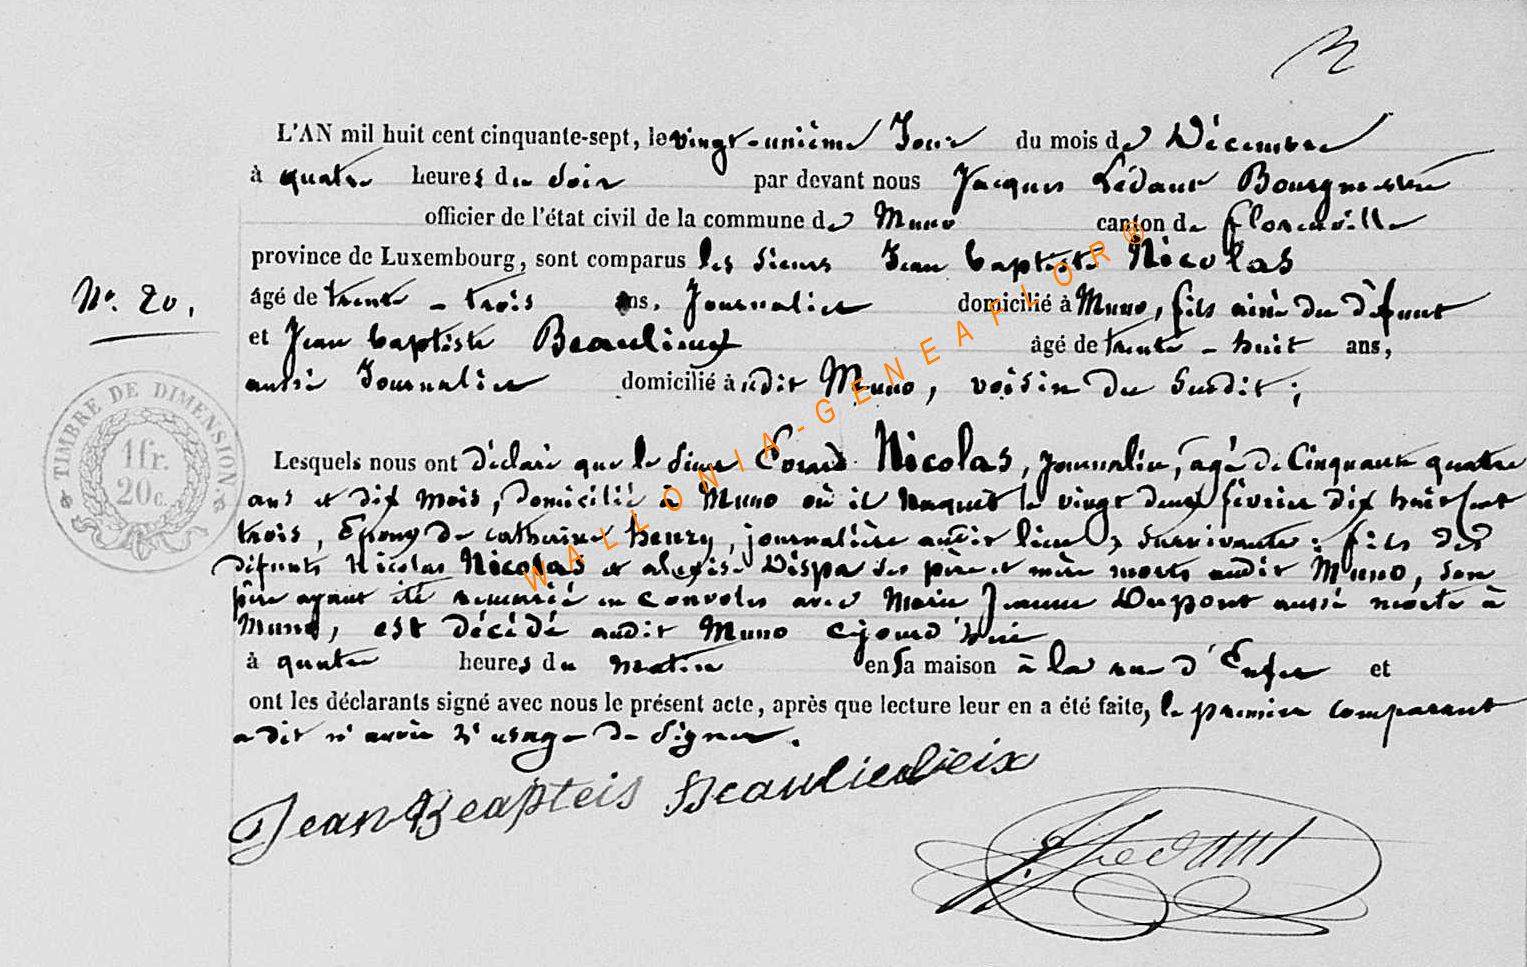 L'AN mil huit cent cinquante-sept, le vingt-unième Jour du mois de Décembre
à quatre heures du soir par devant nous Jacques Lédant Bourgmestre
officier de l'état civil de la commune de Muno canton de florenville
province de Luxembourg, sont comparus les sieurs Jean baptiste Nicolas
N°. 20.
âgé de trente-trois ans, Journalier domicilié à Muno, fils ainé du défunt
et Jean baptiste Beaulieux âgé de trente-huit ans,
aussi Journalier domicilié àudit Muno, voisin du susdit;
TIMBRE DE DIMENSION
1fr.
20c.
Lesquels nous ont déclaré que le sieur Evrard Nicolas, journalier, agé de Cinquante quatre
ans et dix mois, domicilié à Muno où il naquit le vingt deux février dix huit cent
trois, Epoux de catherine henry, journalière audit lieu, survivante; fils des
défunts Nicolas Nicolas et alexise Dispa ses père et mère morts audit Muno, son
père ayant été remarié en convoles avec Marie Jeanne Dupont aussi morte à
Muno, est décédé audit Muno cejourd'hui
à quatre heures du matin en sa maison à la rue d'Enfer et
ont les déclarants signé avec nous le présent acte, après que lecture leur en a été faite, le premier comparant
a dit n'avoir l'usage de signer.
Jean Beapteis Beaulieux
JLedant
WALLONIA-GENEAFLOR®